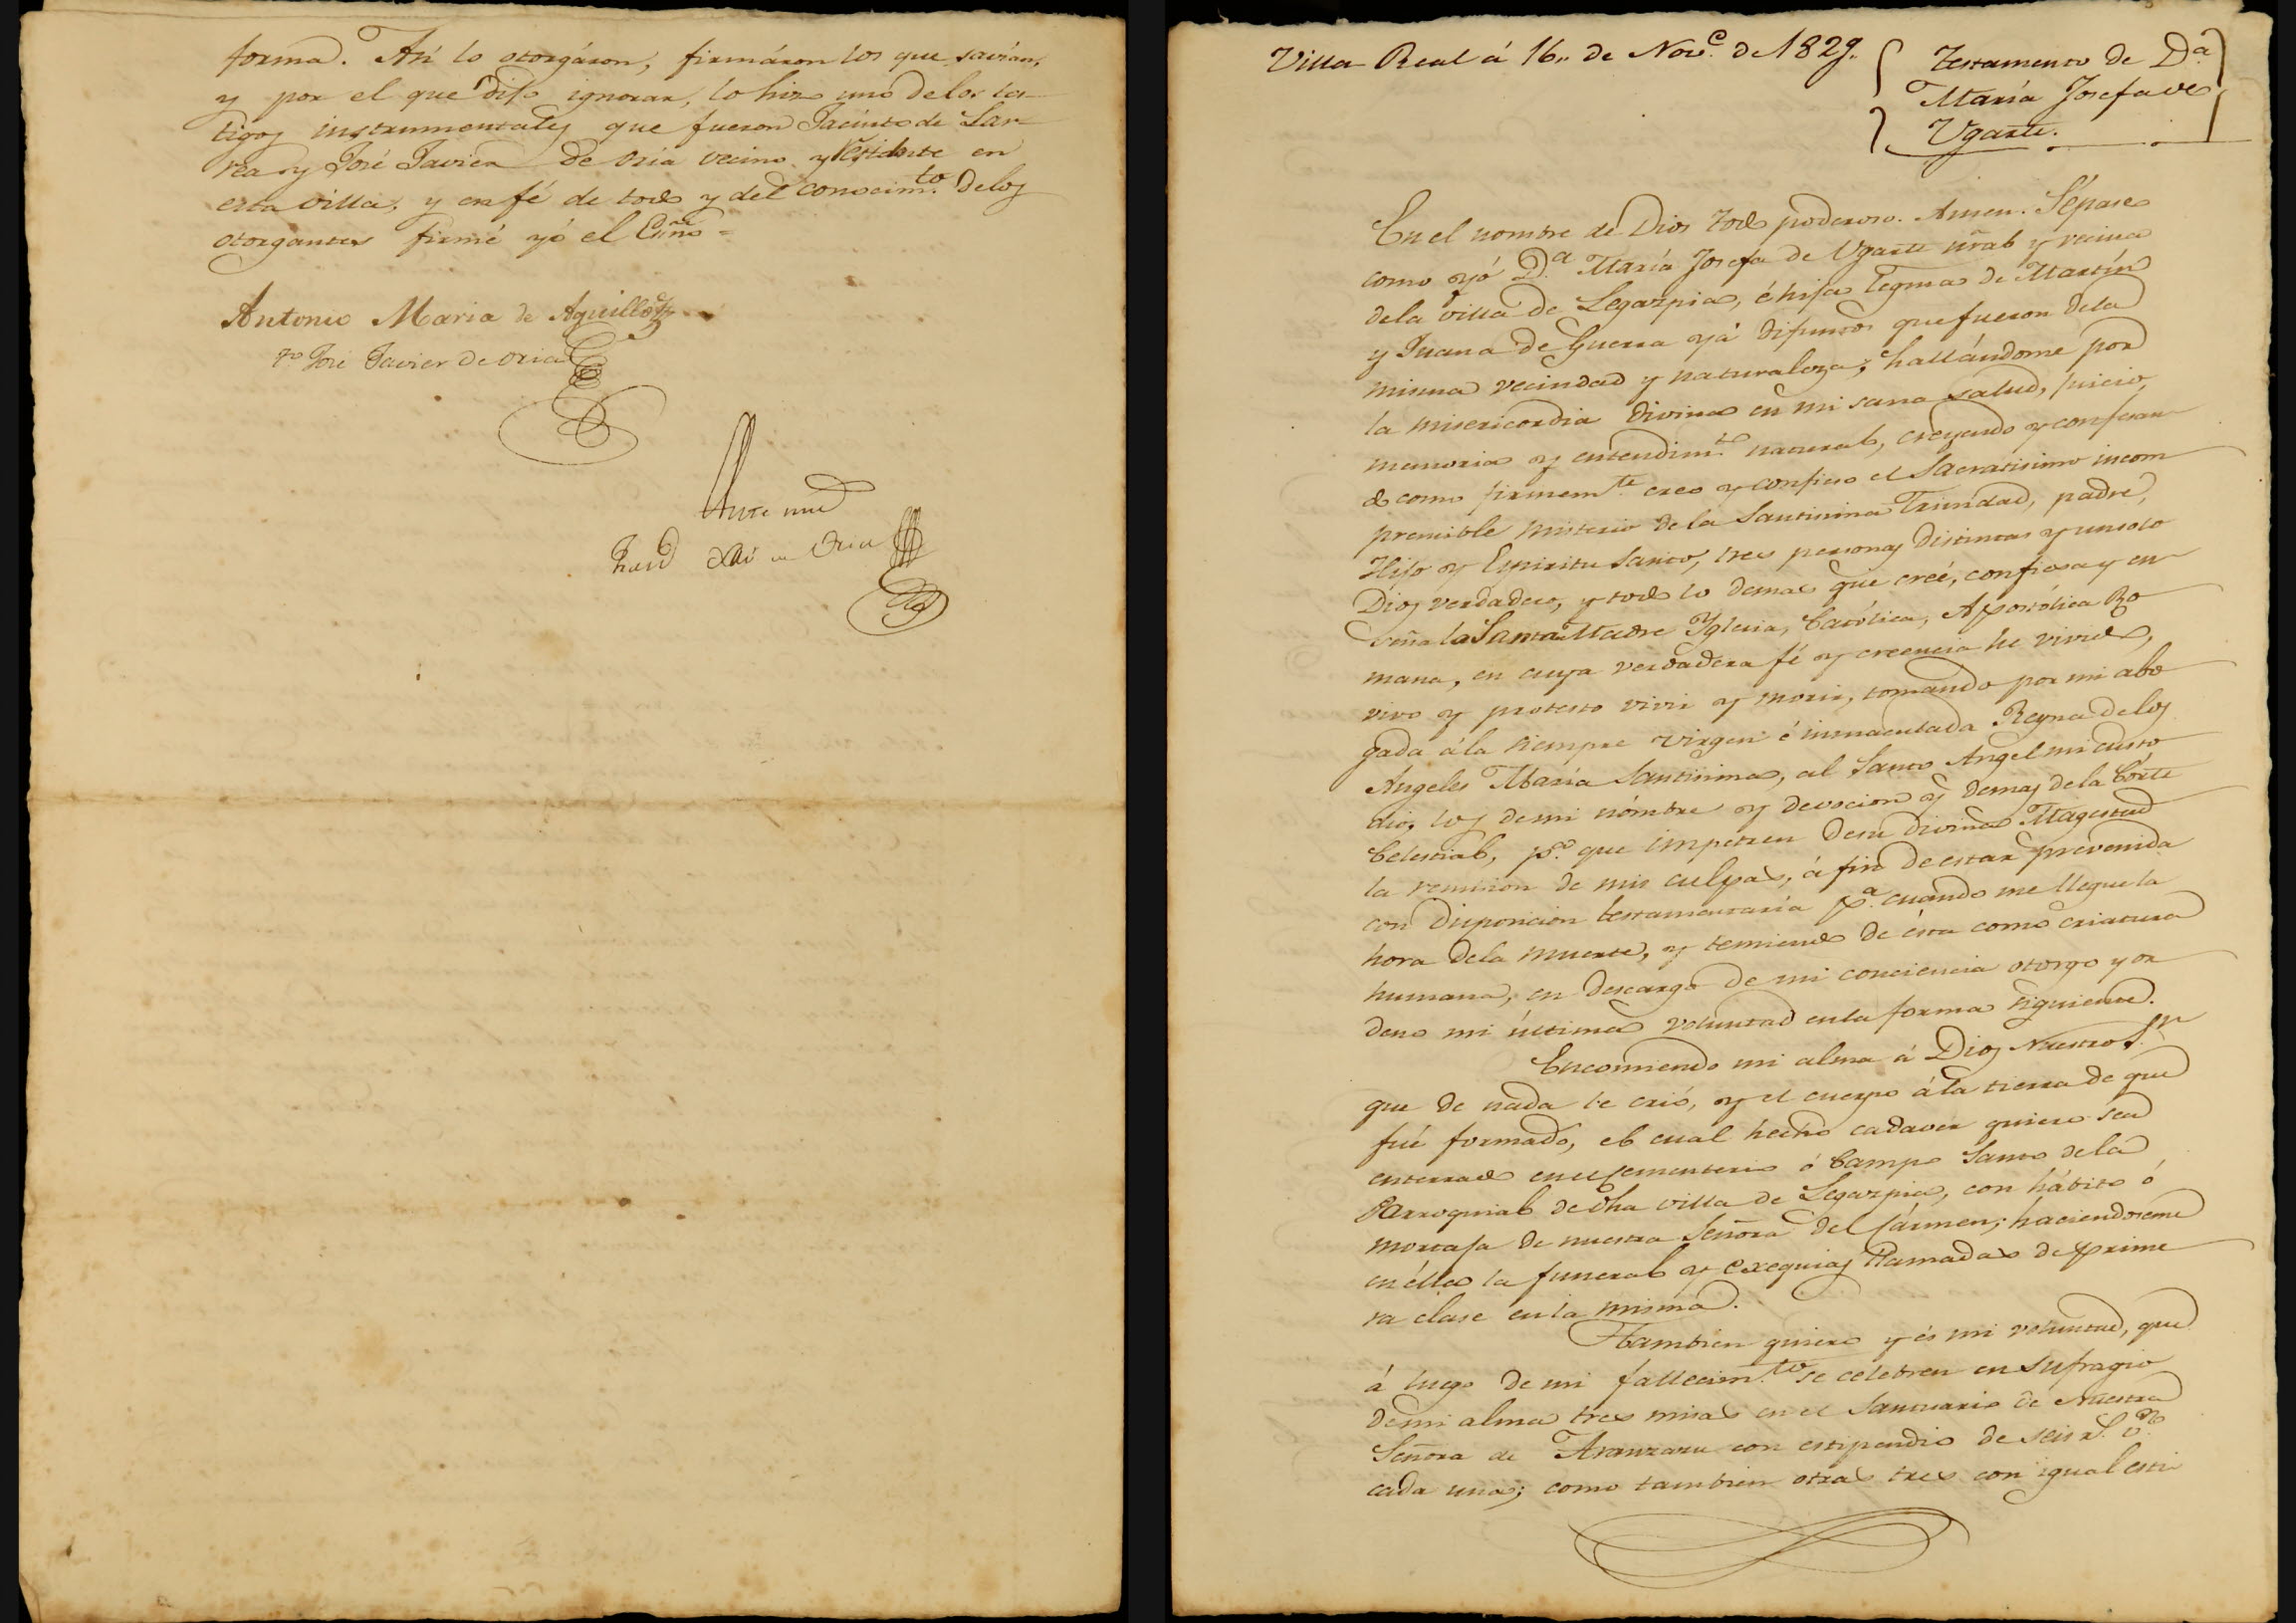 forma. Asi lo otorgáron, firmáron los que savian,
y por el que dijo ignorar, lo hizo uno delos tes-
tigos instrumentales que fueron Jacinto de Lar-
rea y José Javier de Oria vecino y residente en
esta villa, y en fé de todo y del conocim.to delos
otorgantes firmé yó el Esño =
Antonio Maria de Aguillo
t.o José Javier de Oria
Ante mi
de Oria
Villa Real á 16,, de Nov.e de 1829.
Testamento de D.a
María Josefa de
Ugarte.
En el nombre de Dios todo poderoso. Amen. Sépase
como yó D.a María Josefa de Ugarte nral y vecina
dela villa de Legazpia, é hija legma de Martín
y Juana de Guerra yá difuntos que fueron dela
misma vecindad y naturaleza; hallándome por
la misericordia divina en mi sana salud, juicio,
memoria y entendim.to natural, creyendo y confesan-
do como firmem.te creo y confieso el Sacratisimo incom
prensible misterio dela Santisima Trinidad, padre,
Hijo y Espiritu Santo, tres personas distintas y un solo
Dios verdadero, y todo lo demas que creé, confiesa y en-
seña la Santa Madre Yglesia, Católica, Apostólica Ro-
mana, en cuya verdadera fé y creencia he vivido,
vivo y protesto vivir y morir, tomando por mi abo-
gada ála siempre Virgen é inmaculada Reyna delos
Ángeles María Santisima, al Santo Angel mi custo-
dio, los de mi nómbre y devocion y demas dela Córte
Celestial, p.a que impetren desu divina Magestad
la remision de mis culpas, á fin de estar prevenida
con disposicion testamentaría p.a cuando me llegue la
hora dela muerte, y temiendo de ésta como criatura
humana, en descargo de mi conciencia otorgo y or-
deno mi última voluntad en la forma siguiente.
Encomiendo mi alma á Dios Nuestro S.r
que de nada le crió, y el cuerpo ála tierra de que
fué formado, el cual hecho cadaver quiero sea
enterrado en el Cementerio ó Campo Santo dela
Parroquial de dha villa de Legazpia, con hábito ó
mortaja de nuestra Señora del Cármen; haciendoseme
en élla la funeral y exequias llamadas de prime-
ra clase en la misma.
Tambien quiero y és mi voluntad, que
á luego de mi fallecim.to se celebren en sufragio
de mi alma tres misas en el Santuario de Nuestra
Señora de Aranzazu con estipendio de seis r.s v.n
cada una; como tambien otras tres con igual esti-